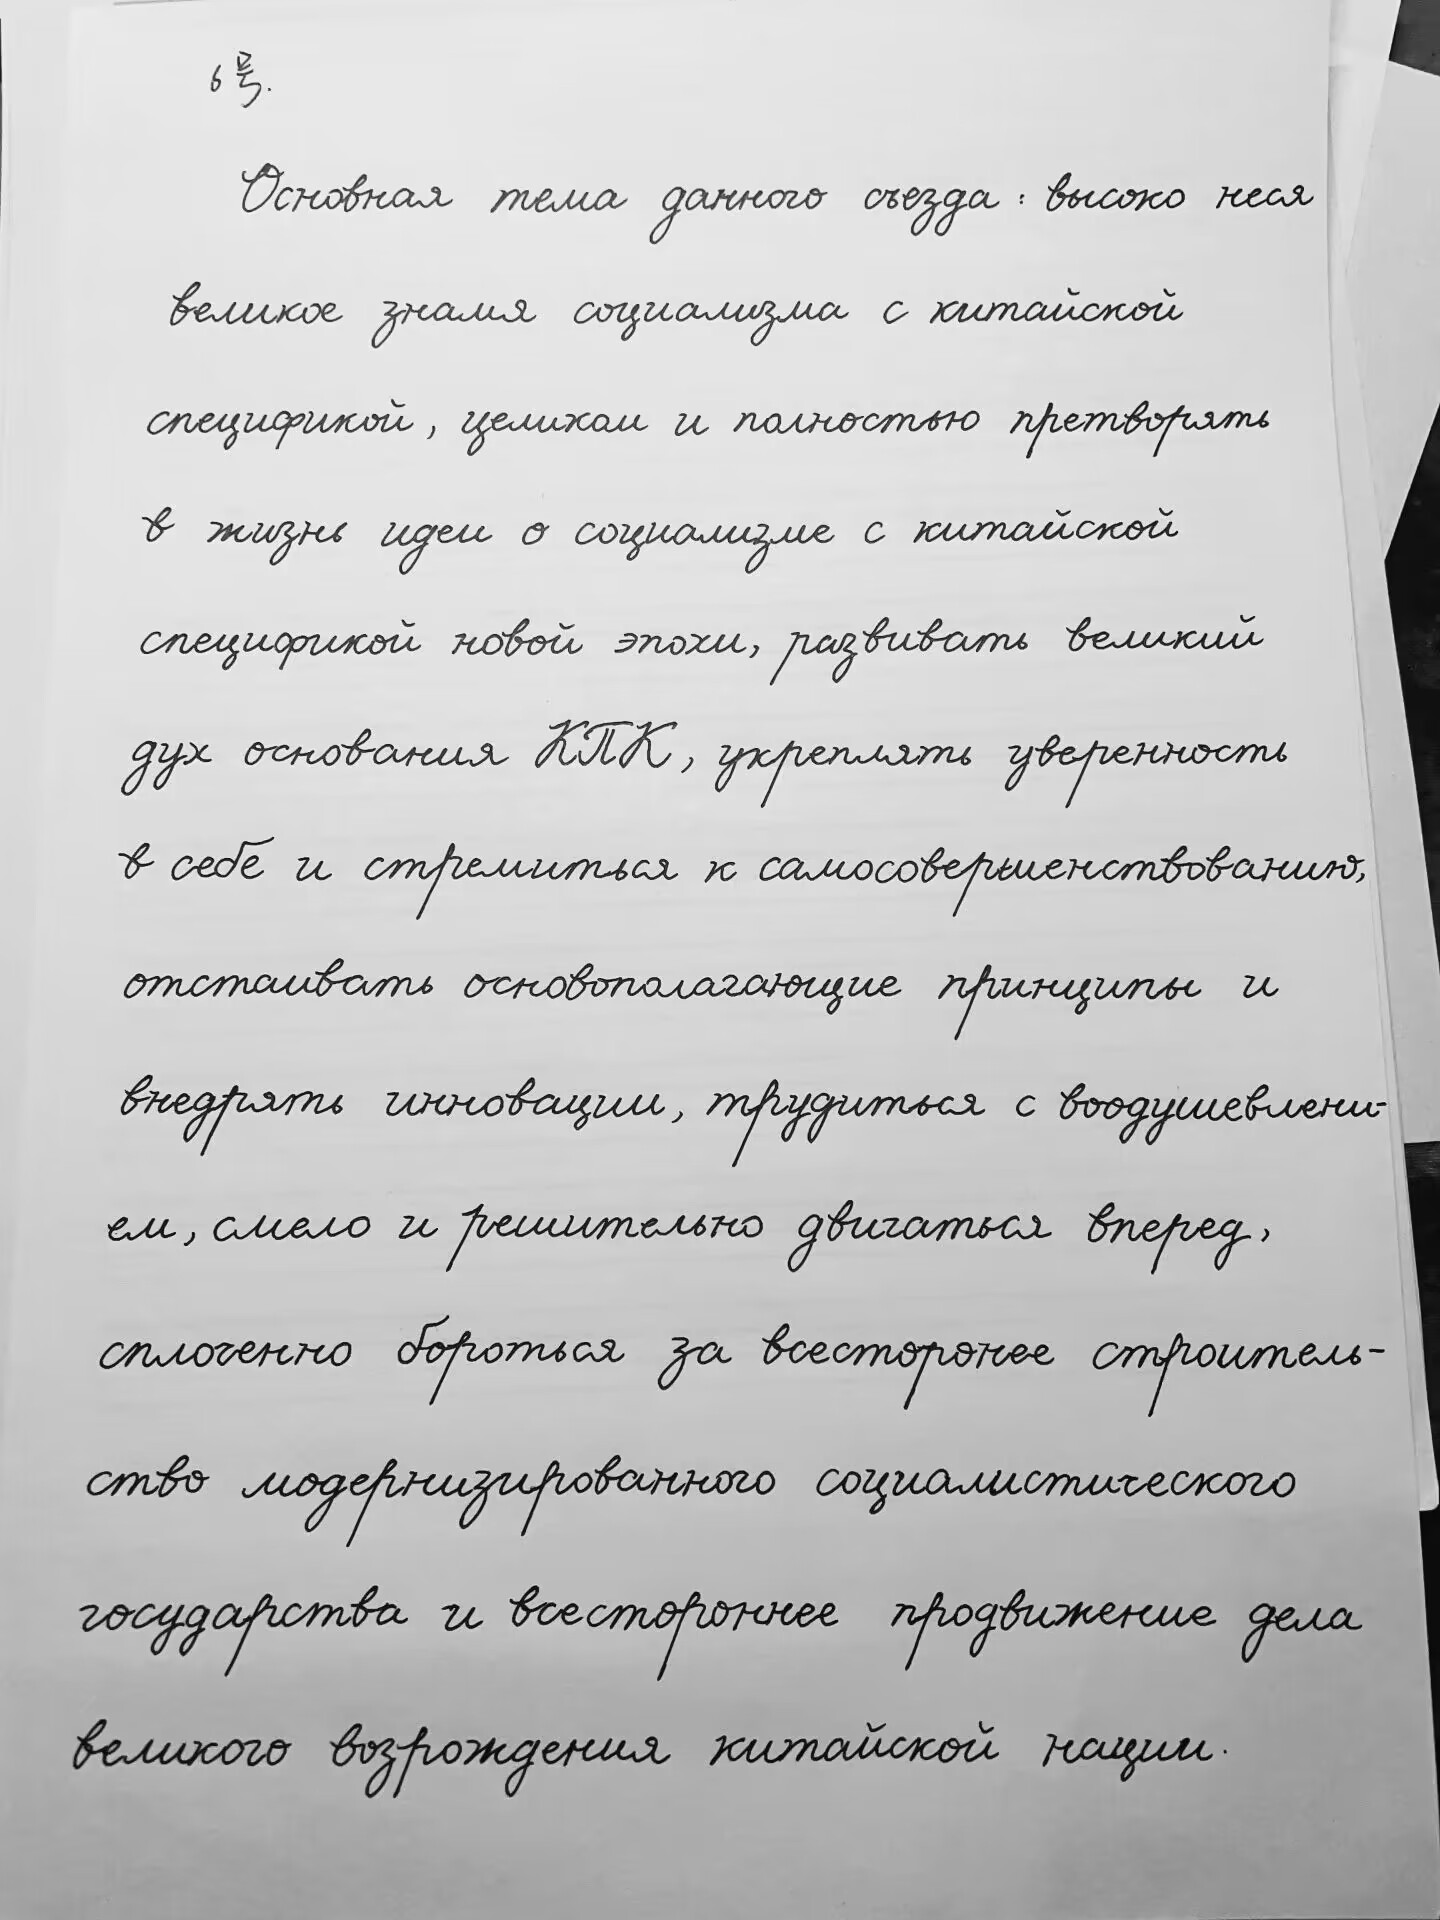 6号.
Основная тема данного съезда: высоко неся
великое знамя социализма с китайской
спецификой, целиком и полностью претворять
в жизнь идеи о социализме с китайской
спецификой новой эпохи, развивать великий
дух основания КПК, укреплять уверенность
в себе и стремиться к самосовершенствованию,
отстаивать основополагающие принципы и
внедрять инновации, трудиться с воодушевлени-
ем, смело и решительно двигаться вперед,
сплоченно бороться за всесторонее строитель-
ство модернизированного социалистического
государства и всестороннее продвижение дела
великого возрождения китайской нации.